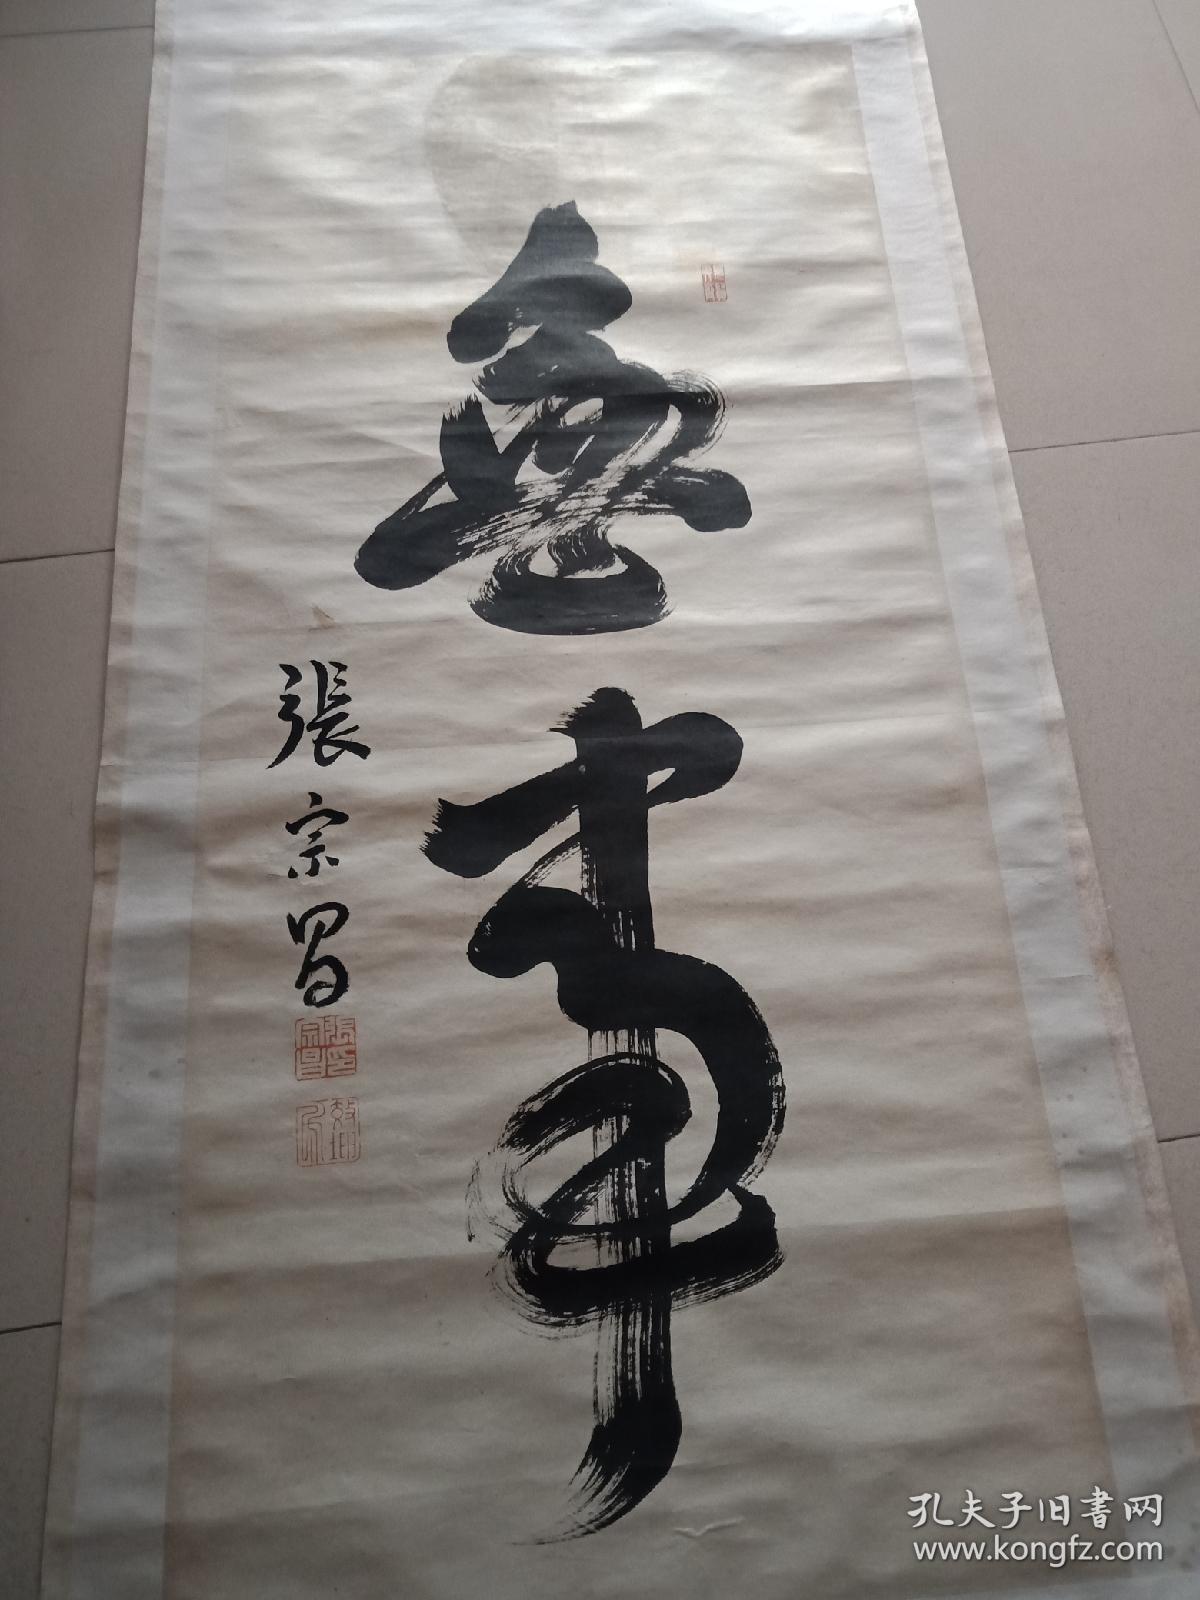 無事
張宗昌
張宗昌印
孔夫子旧书网
www.kongfz.com